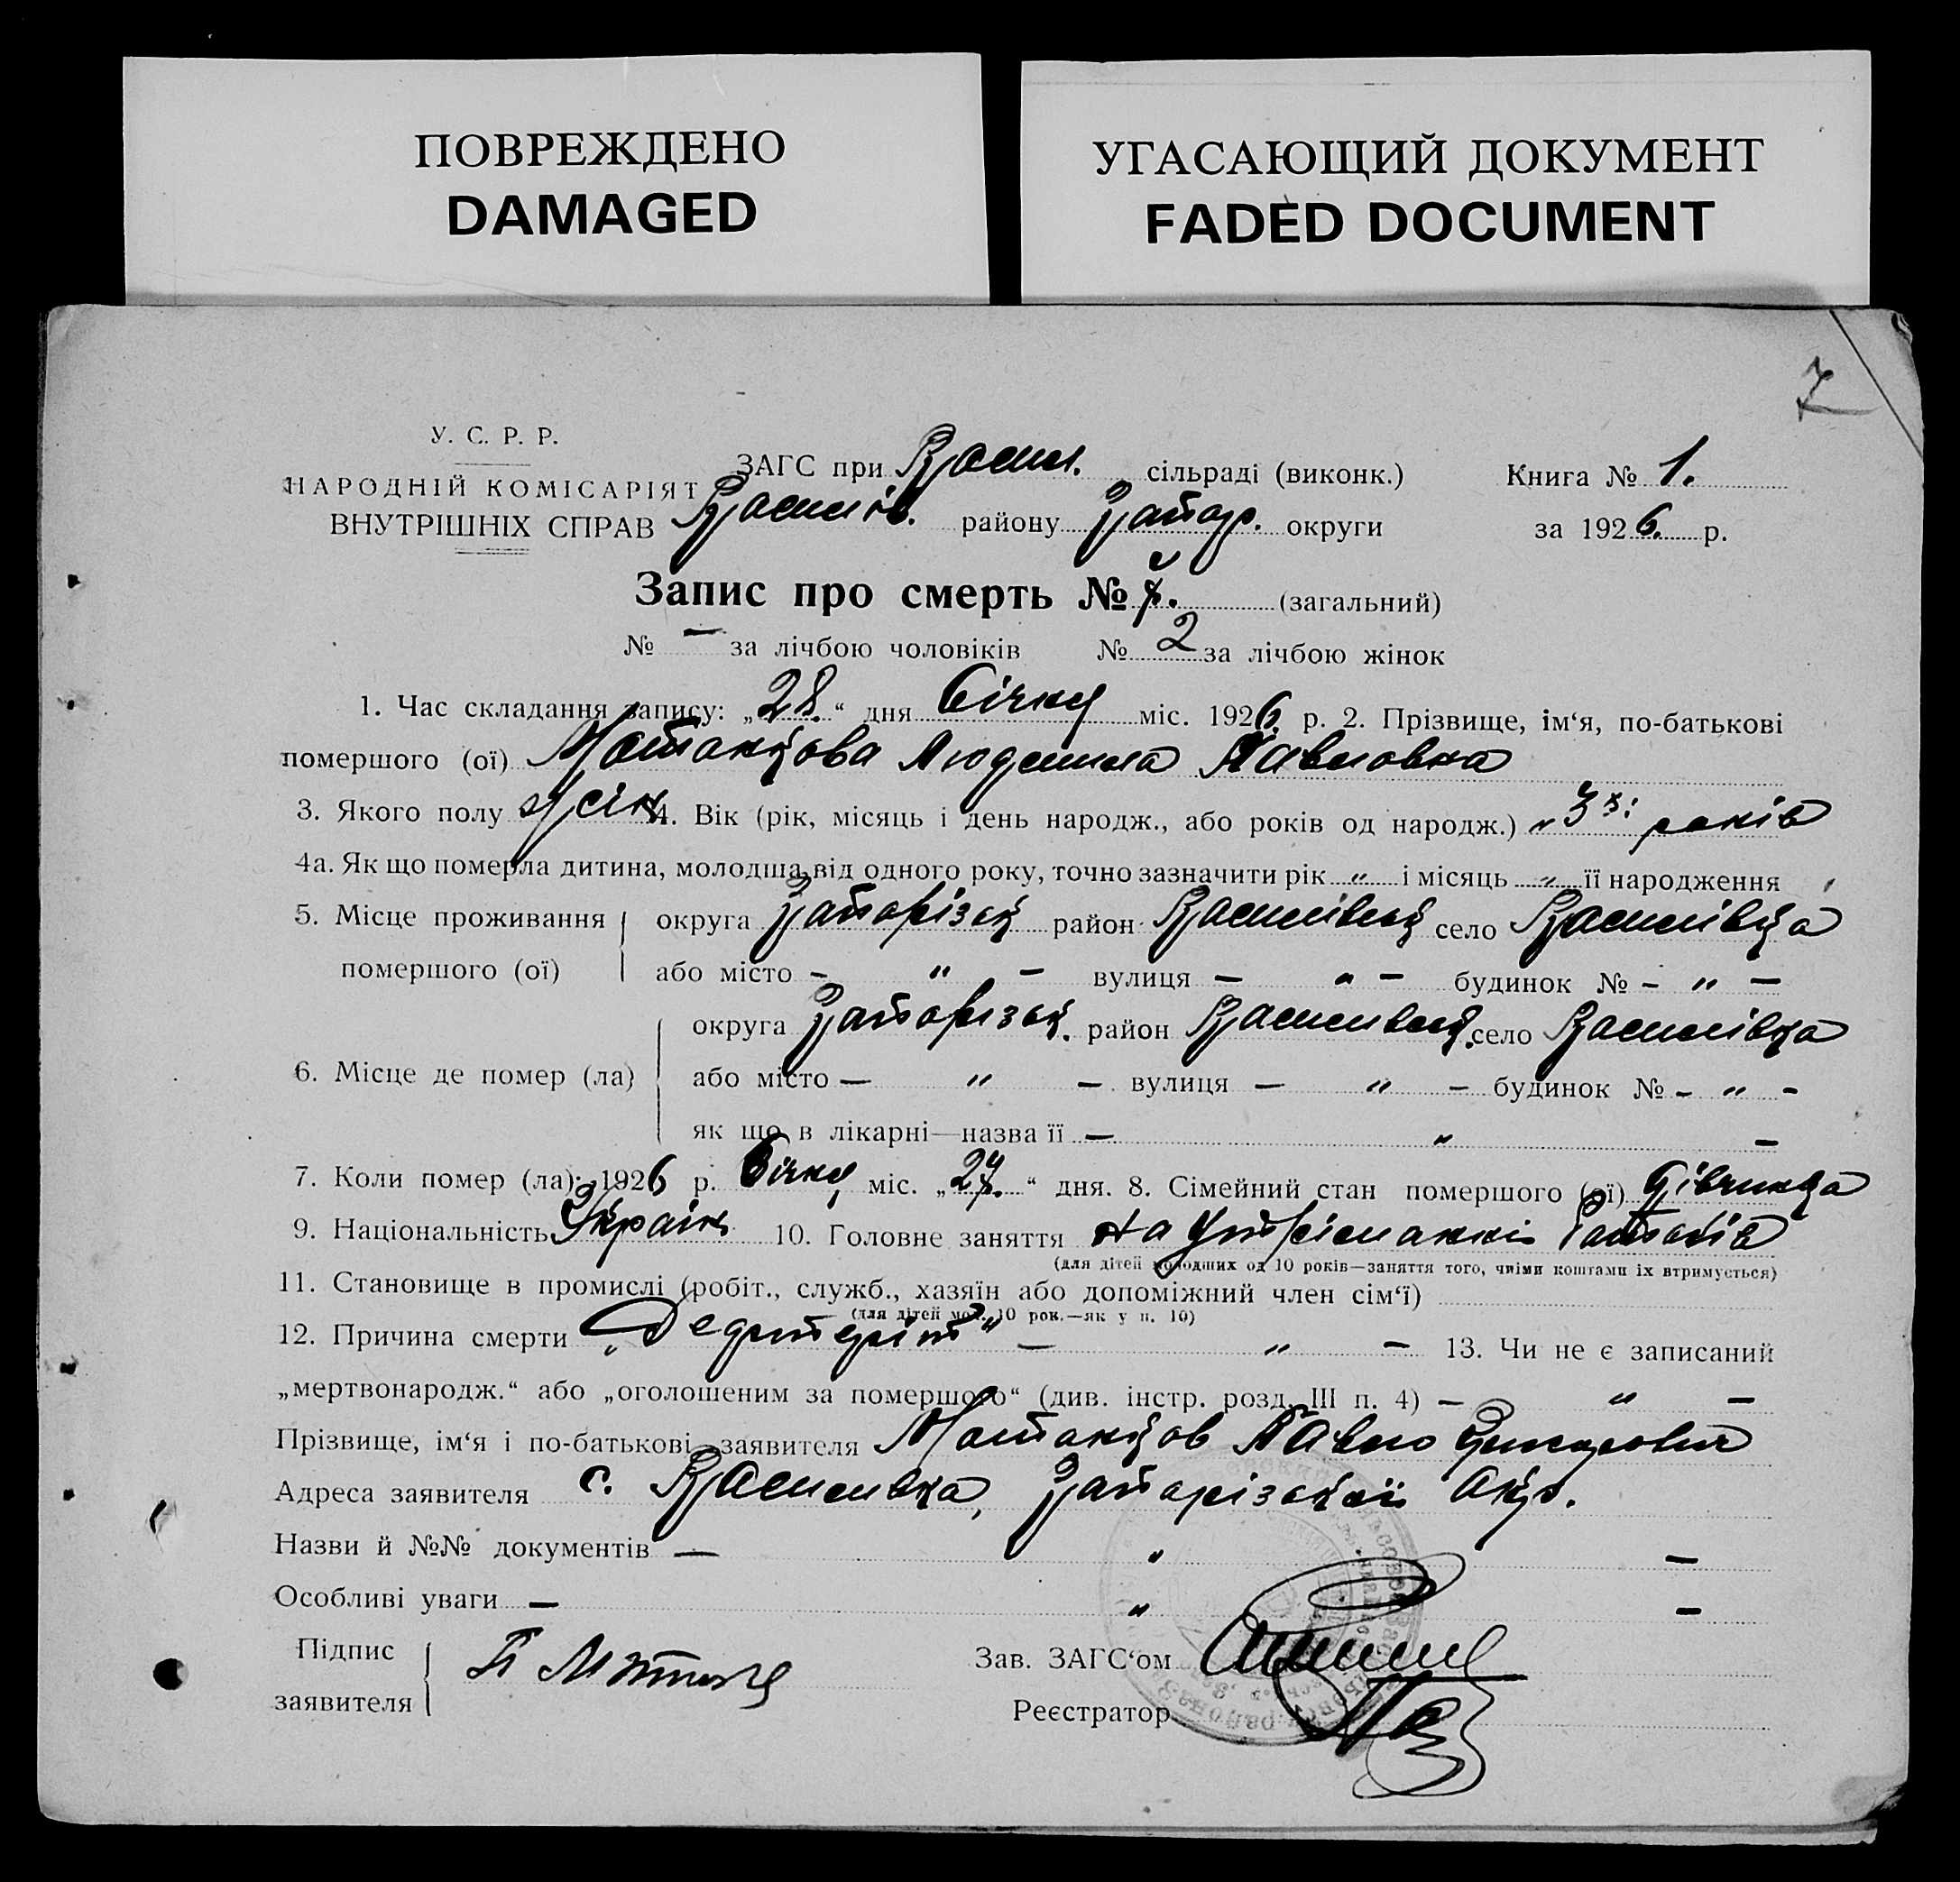 ПОВРЕЖДЕНО
DAMAGED
УГАСАЮЩИЙ ДОКУМЕНТ
FADED DOCUMENT
7
У. С. Р. Р.
НАРОДНІЙ КОМІСАРІЯТ
ВНУТРІШНІХ СПРАВ
ЗАГС при Васил. сільраді (виконк.)
Василів. району Запор. округи
Книга № 1.
за 1926. р.
Запис про смерть № 7. (загальний)
№ — за лічбою чоловіків № 2 за лічбою жінок
1. Час складання запису: „28.“ дня Січня міс. 1926 р. 2. Прізвище, ім‘я, по-батькові
помершого (ої) Людмила Павловна
3. Якого полу жін. 4. Вік (рік, місяць і день народж., або років од народж.) „3х: років
4а. Як що померла дитина, молодша від одного року, точно зазначити рік „ і місяць „ її народження
5. Місце проживання помершого (ої) округа Запорізьк район Василівськ село Василівка
або місто — „ — вулиця — „ — будинок № — „ —
6. Місце де помер (ла) округа Запорізьк. район Василивськ. село Василівка
або місто — „ — вулиця — „ — будинок № — „ —
як що в лікарні—назва її — „ —
7. Коли помер (ла): 1926 р. Січня міс. „27.“ дня. 8. Сімейний стан помершого (ої) дівчинка
9. Національність Україн 10. Головне заняття На утріманні
(для дітей молодших од 10 років—заняття того, чиїми коштами їх втримується)
11. Становище в промислі (робіт., служб., хазяїн або допоміжний член сім‘ї)
(для дітей мол. 10 рок.—як у п. 10)
12. Причина смерти — „ — 13. Чи не є записаний
„мертвонародж.“ або „оголошеним за помершого“ (див. інстр. розд. III п. 4) — „ —
Прізвище, ім‘я і по-батькові заявителя Павло
Адреса заявителя с. Василивка, Запорізької Окр.
Назви й №№ документів — „ —
Особливі уваги — „ —
Підпис
заявителя
Зав. ЗАГС‘ом
Реєстратор